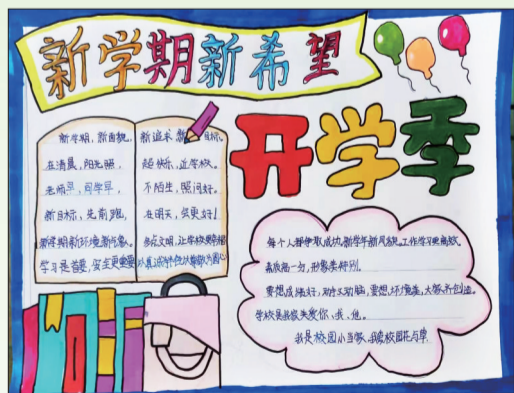 新学期新希望
开学季
新学期，新面貌。
在清晨，阳光照，
老师早，同学早，
新目标，先前跑，
新学期新环境新气象。
学习是首要，安全更重要
新追求 新 目标。
超快乐，近学校。
不陌生，照问好。
在明天，成更好！
多点文明，让学校更
每个人都争取成功，新学年新风貌，工作学习更高效。
素质高一分，形象美特别。
要想成绩好，动手又动脑，要想环境美，大家齐创造。
学校是我家关爱你、我、他。
我是校园小当家，我爱校园花与草